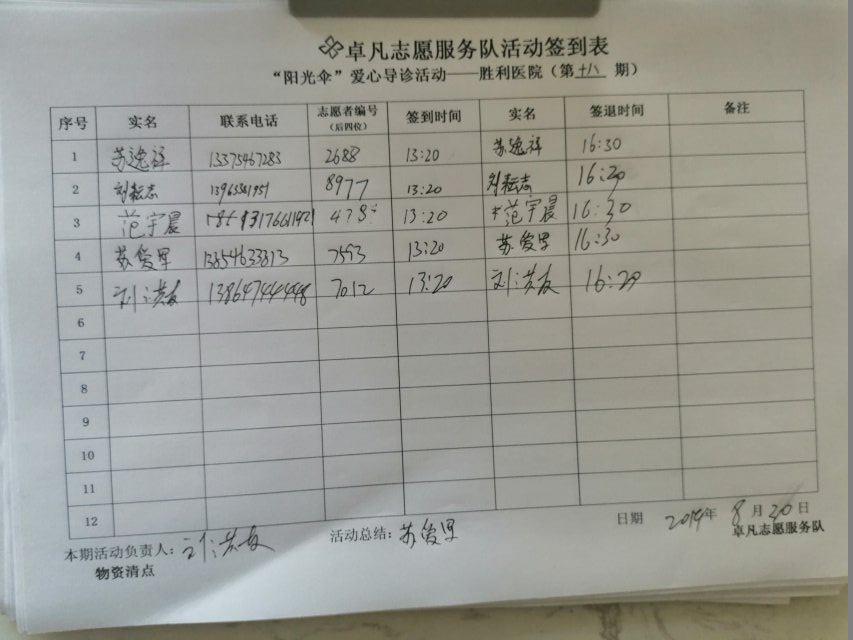 卓凡志愿服务队活动签到表
“阳光伞”爱心导诊活动——胜利医院（第十八期）
序号 实名 联系电话 志愿者编号（后四位） 签到时间 实名 签退时间 备注
1 苏逸祥 13375467283 2688 13:20 苏逸祥 16:30
2 刘耘志 8977 13:20 刘耘志 16:30
3 范宇晨 13:20 范宇晨 16:30
4 苏俊男 13854633813 7593 13:20 苏俊男 16:30
5 刘洪友 13864744448 7012 13:20 刘洪友 16:20
6
7
8
9
10
11
12
本期活动负责人：刘洪友 活动总结：苏俊男 日期 2019年8月30日
物资清点 卓凡志愿服务队